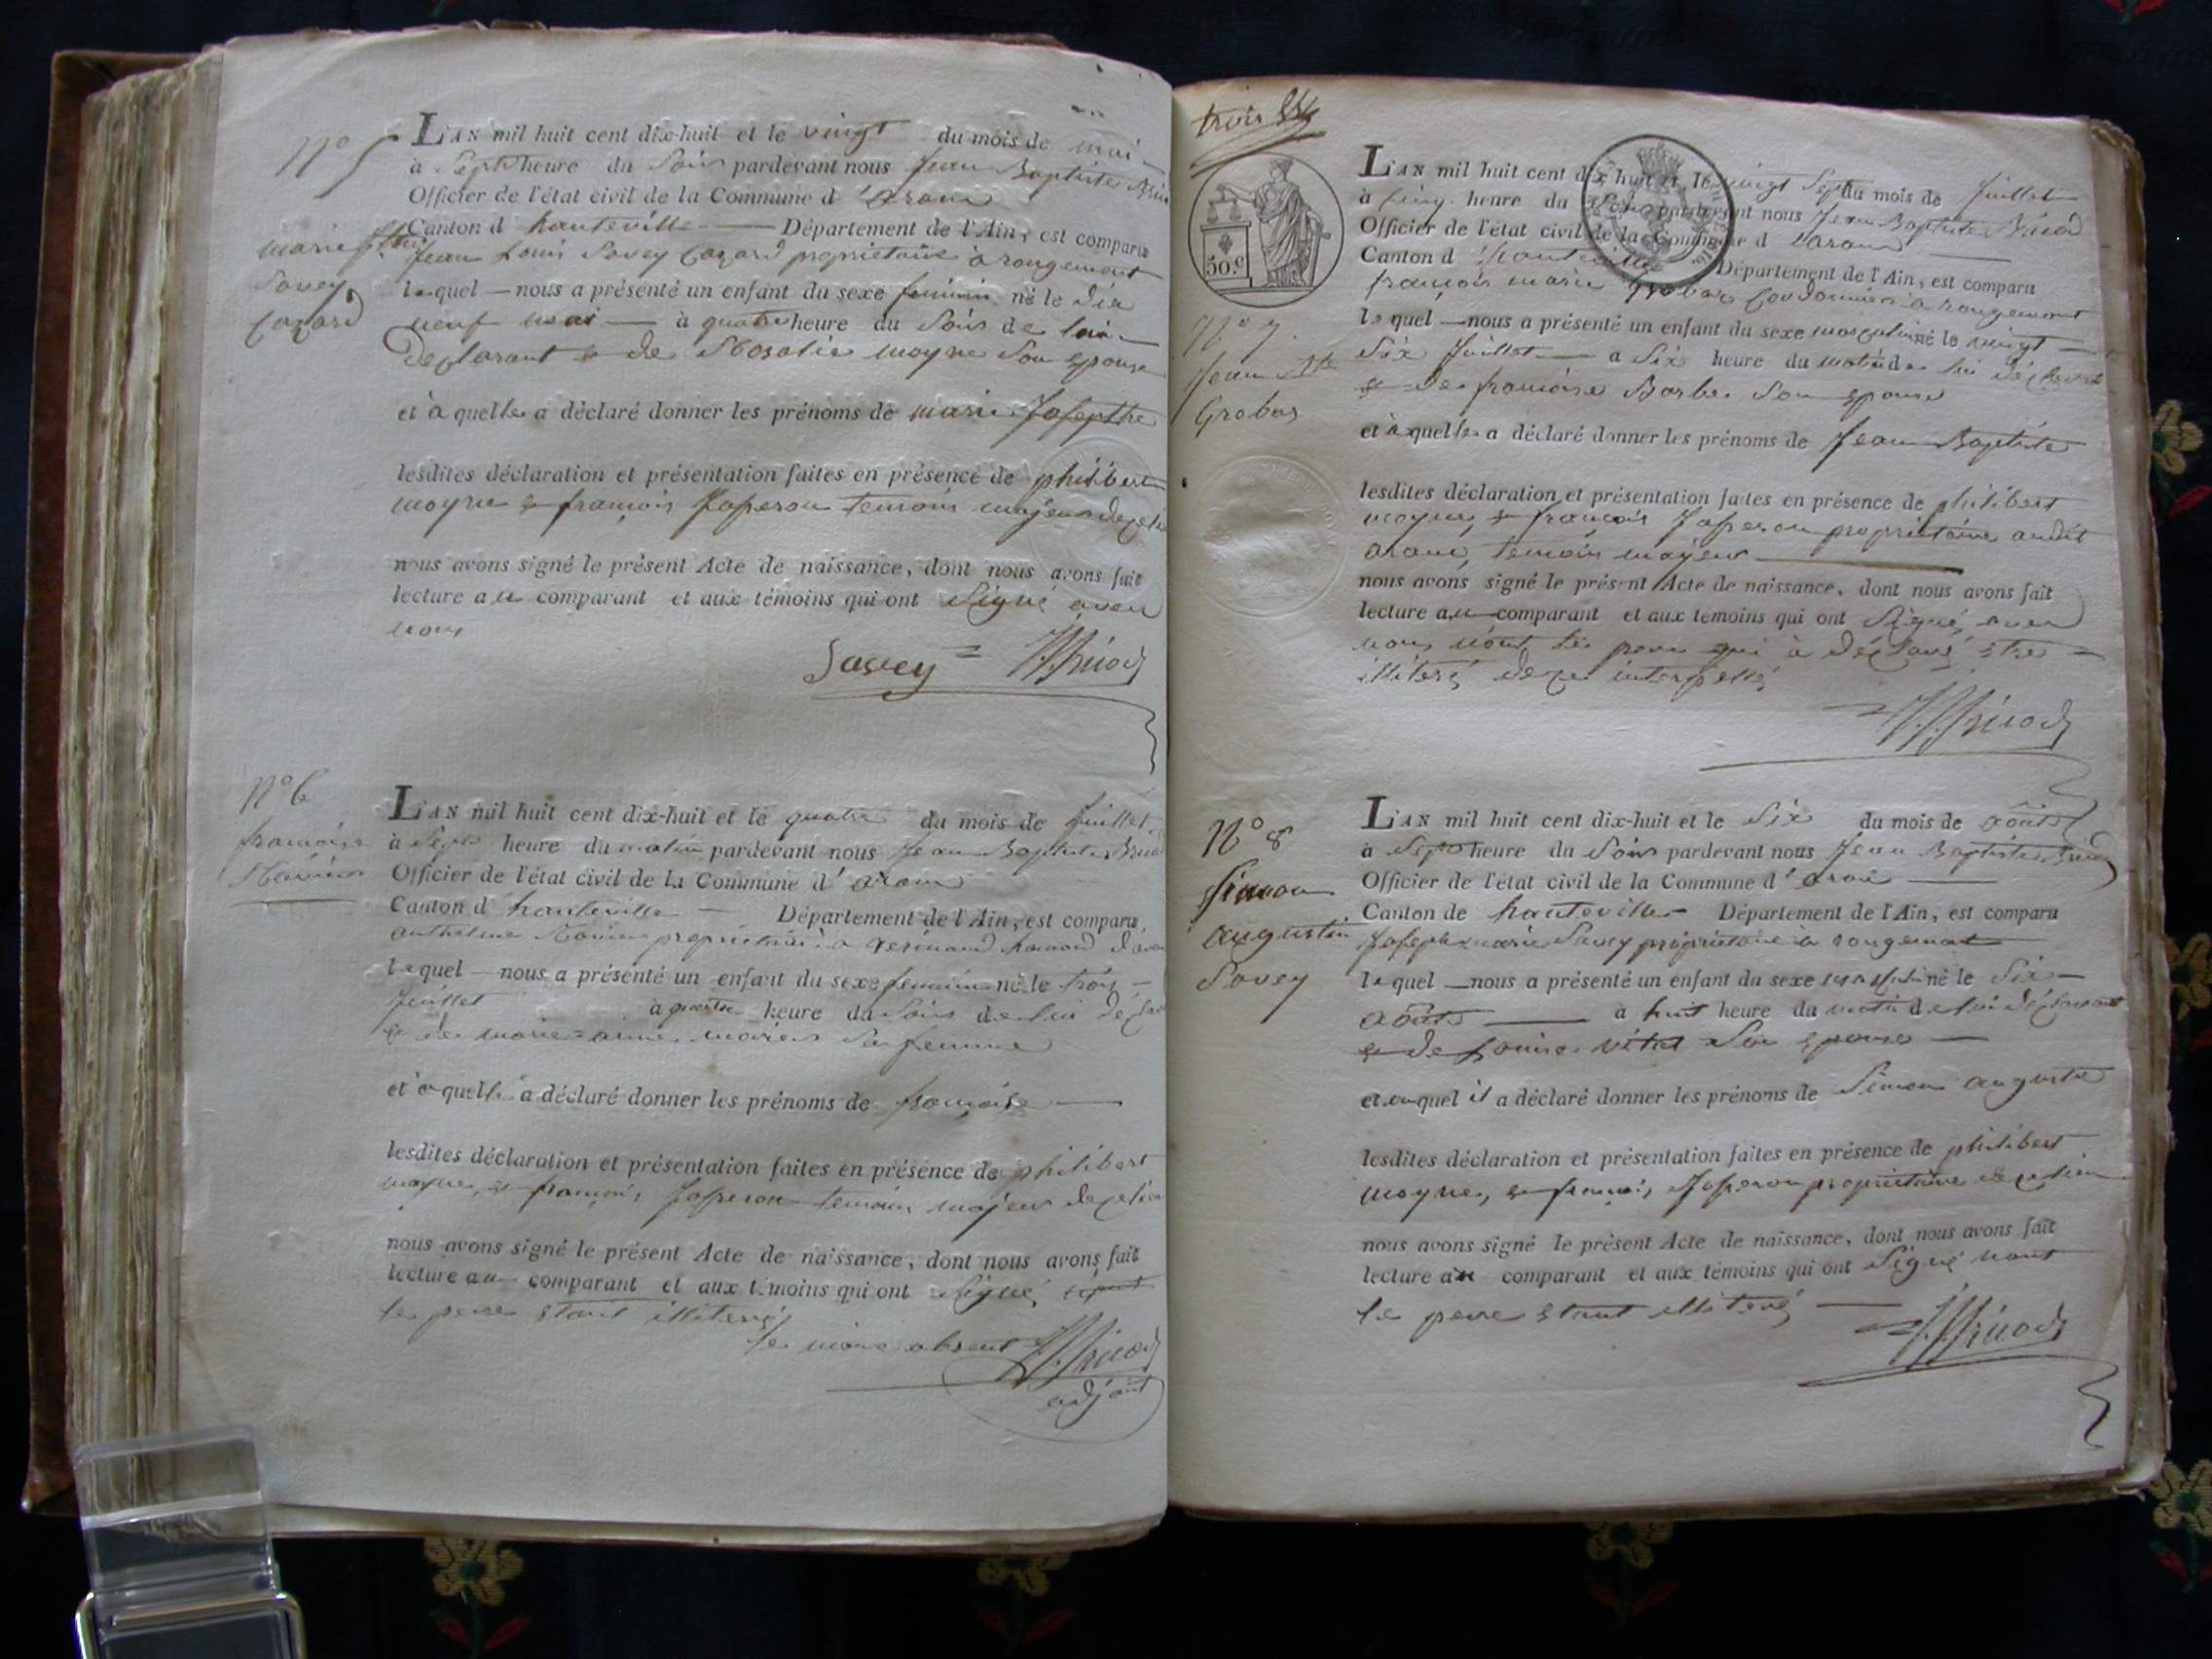 N° 5
marie Jthe
Savey
Cozard
L'AN mil huit cent dix-huit et le vingt du mois de mai
à Sept heure du Soir pardevant nous Jean Baptiste
Officier de l'état civil de la Commune d'aranc
Canton d hauteville Département de l'Ain, est comparu
Jean Louis Savey Cozard propriétaire à rougemont
lequel nous a présenté un enfant du sexe feminin né le dix
neuf mai à quatre heure du Soir de lui
Declarant & de Rosalie moyne Son epouse
et a quelle a déclaré donner les prénoms de marie Josepthe
lesdites déclaration et présentation faites en présence de philibert
moyne & françois Joperon temoins majeurs
nous avons signé le présent Acte de naissance, dont nous avons fait
lecture au comparant et aux témoins qui ont Signé avec
nous
Savey
N° 6
françoise
L'AN mil huit cent dix-huit et le quatre du mois de Juillet
à Sept heure du matin pardevant nous Jean Baptiste
Officier de l'état civil de la Commune d'aranc
Canton d hauteville Département de l'Ain, est comparu
anthelme propriétaire a
lequel nous a présenté un enfant du sexe feminin né le trois
Juillet à quatre heure du Soir de lui
& de marie anne Sa femme
et a quelle a déclaré donner les prénoms de françoise
lesdites déclaration et présentation faites en présence de philibert
moyne, & françois Joperon temoins majeur
nous avons signé le présent Acte de naissance, dont nous avons fait
lecture au comparant et aux témoins qui ont Signé
le pere etant illiteré
le maire absent
adjoint
trois
50.c
N° 7
Jean Bte
Grobas
L'AN mil huit cent dix-huit et le vingt Sept du mois de Juillet
à Cinq heure du Soir pardevant nous Jean Baptiste
Officier de l'état civil de la Commune d'aranc
Canton d'hauteville Département de l'Ain, est comparu
françois marie Grobas Cordonnier à rougemont
lequel nous a présenté un enfant du sexe masculin né le vingt
Six Juillet a Six heure du matin de lui déclarant
& de françoise Barbe Son epouse
et a quelle a déclaré donner les prénoms de Jean Baptiste
lesdites déclaration et présentation faites en présence de philibert
moyne, & françois Joperon propriétaire audit
aranc, temoin majeur
nous avons signé le présent Acte de naissance, dont nous avons fait
lecture au comparant et aux temoins qui ont Signé, avec
nous non le pere qui à déclaré etre
illiteré de ce interpellé
N° 8
Simon
augustin
Savey
L'AN mil huit cent dix-huit et le Six du mois de août
à Sept heure du Soir pardevant nous Jean Baptiste
Officier de l'état civil de la Commune d'aranc
Canton de hauteville Département de l'Ain, est comparu
Joseph marie Savey propriétaire à rougemont
lequel nous a présenté un enfant du sexe masculin né le Six
août à huit heure du matin de lui déclarant
& de Louise vétat Son epouse
et auquel il a déclaré donner les prénoms de Simon augustin
lesdites déclaration et présentation faites en présence de philibert
moyne, & françois Joperon propriétaire
nous avons signé le présent Acte de naissance, dont nous avons fait
lecture au comparant et aux témoins qui ont Signé non
le pere etant illiteré